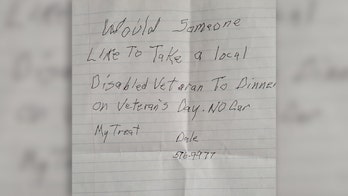 Would Someone
Like To Take a local
Disabled Veteran To Dinner
on Veteran's Day. No Car
My Treat
Dale
576-7977